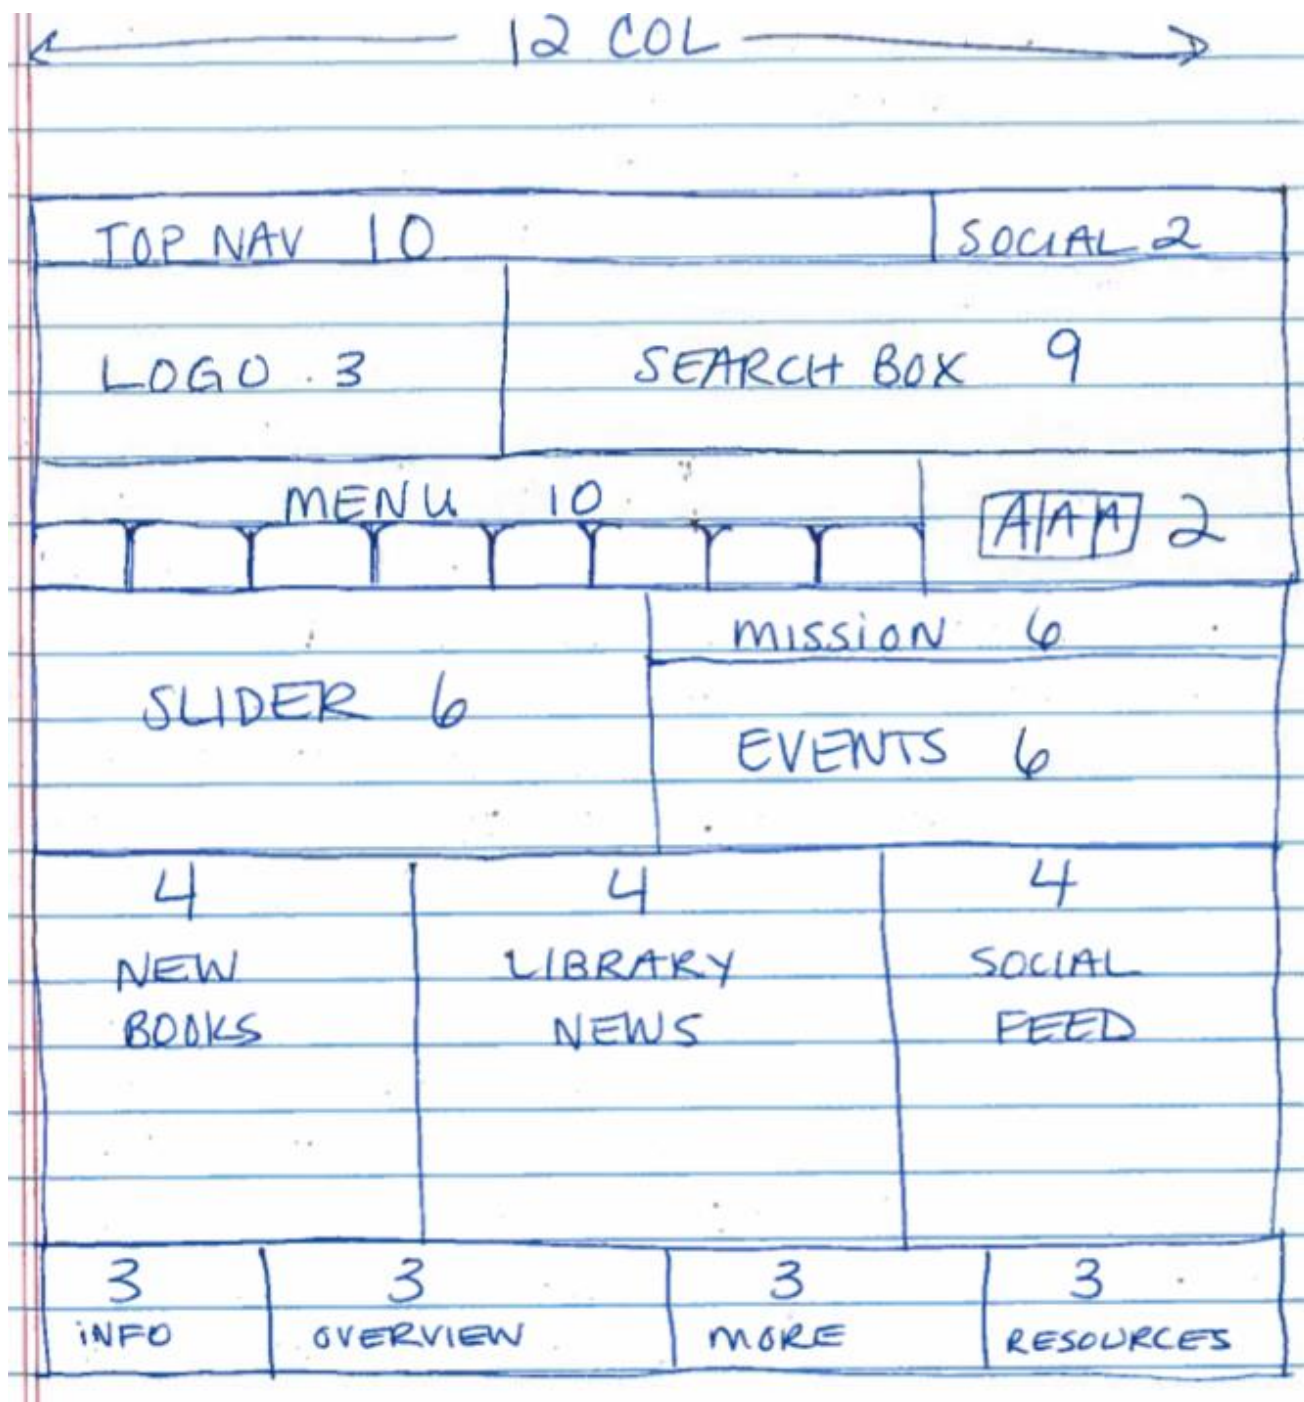 12 COL
TOP NAV 10
SOCIAL 2
LOGO 3
SEARCH BOX 9
MENU 10
A A A 2
MISSION 6
SLIDER 6
EVENTS 6
4
NEW
BOOKS
4
LIBRARY
NEWS
4
SOCIAL
FEED
3
INFO
3
OVERVIEW
3
MORE
3
RESOURCES